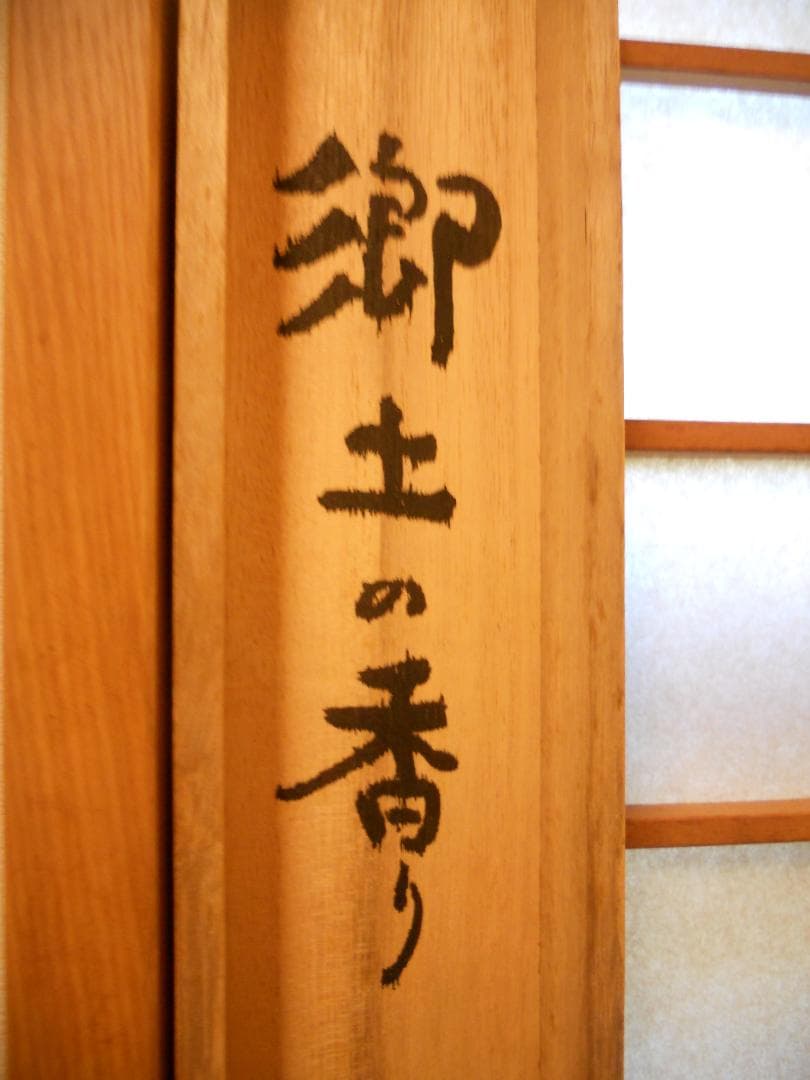 郷土の香り